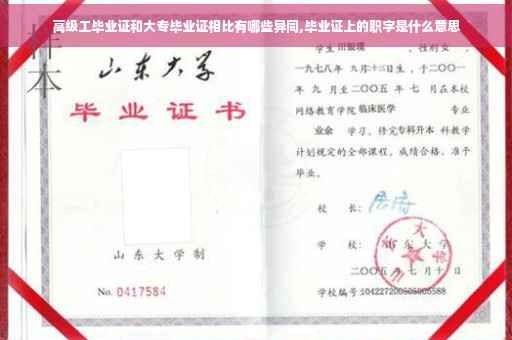 高级工毕业证和大专毕业证相比有哪些异同,毕业证上的职字是什么意思
样本
山东大学
毕业证书
山东大学制
No. 0417584
学生
一九七八年 九月十三日生,于二〇〇一
年 九 月至二〇〇五 年 七 月在本校
网络教育学院 临床医学 专业
业余 学习,修完 专科升本 科教学
计划规定的全部课程,成绩合格,准予
毕业。
校 长:
学 校: 山东大学
二〇〇五 年 七 月 十 日
学校编号: